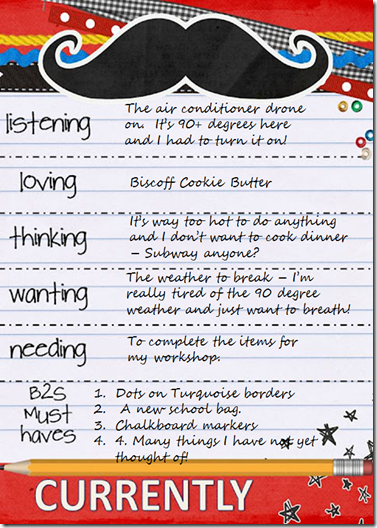 listening
The air conditioner drone
on.  It's 90+ degrees here
and I had to turn it on!
loving
Biscoff Cookie Butter
thinking
It's way too hot to do anything
and I don't want to cook dinner
– Subway anyone?
wanting
The weather to break – I'm
really tired of the 90 degree
weather and just want to breath!
needing
To complete the items for
my workshop.
B2S
Must
haves
1. Dots on Turquoise borders
2. A new school bag.
3. Chalkboard markers
4. 4. Many things I have not yet
thought of!
CURRENTLY